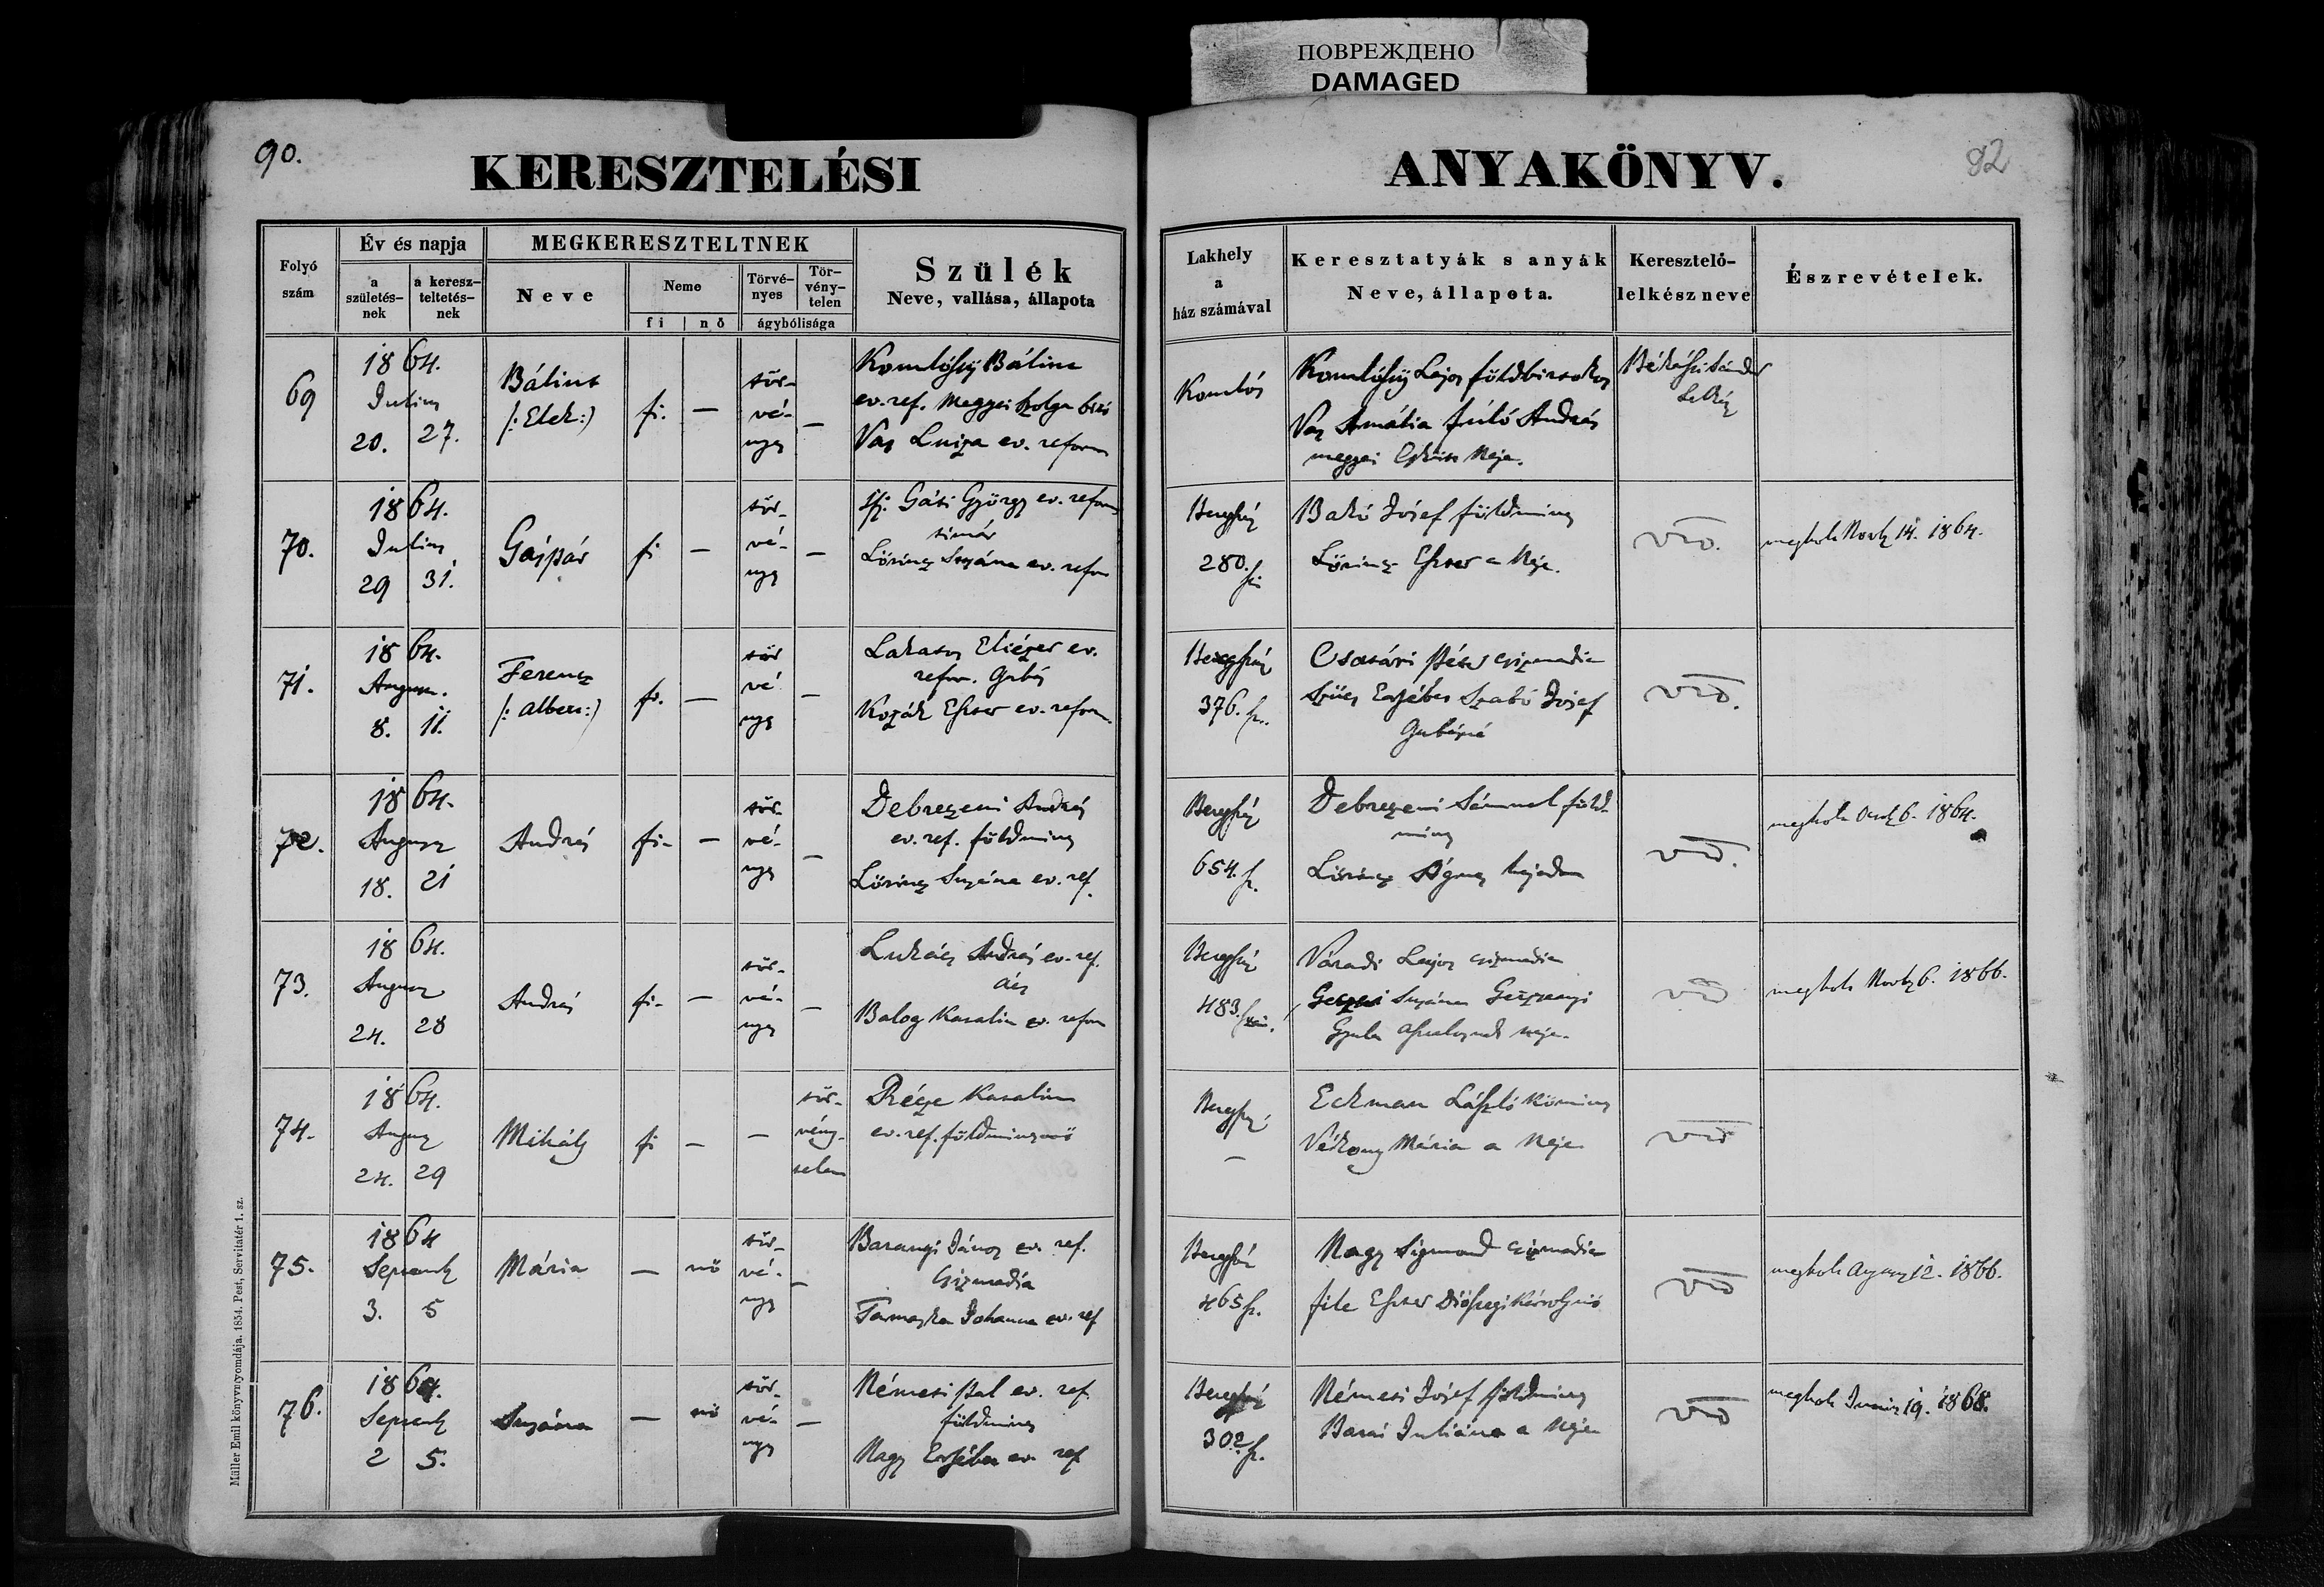 ПОВРЕЖДЕНО
DAMAGED
90.
KERESZTELÉSI
ANYAKÖNYV.
92
Folyó szám
Év és napja
a születés-nek
a keresz-teltetés-nek
MEGKERESZTELTNEK
Neve
Neme
fi | nő
Törvé-nyes
Tör-vény-telen
ágybólisága
Szülék
Neve, vallása, állapota
Lakhely
a
ház számával
Keresztatyák s anyák
Neve, állapota.
Keresztelő-
lelkész neve
Észrevételek.
69
1864.
Julius
20. 27.
Bálint
(: Elek :)
fi. —
tör-
vé-
nyes
—
Komlóssy Bálint
ev. ref. Megyei szolga
Vas Luiza ev. reform
Komlós
Komlóssy Lajos földbirtokos
Vas Amália András
megyei Neje.
Békássi Sándor
Lelkész
70.
1864.
Julius
29 31.
Gáspár
fi —
tör-
vé-
nyes
—
ifj. Gáti György ev. reform
timár
Lőrincz Suzána ev. refor
Beregszász
280.
Bakó József földmives
Lőrincz Eszter a Neje.
vid.
megholt Novb 14. 1864.
71.
1864.
August.
8. 11.
Ferencz
(: Albert :)
fi. —
tör
vé
nyes
—
Lakatos Eliézer ev.
refor. Gubás
Kozák Eszter ev. reform.
Beregszász
376. sz.
Csatári Péter csizmadia
Szűcs Erzsébet Szabó József
Gubásné
vid.
72.
1864.
August
18. 21
András
fi- —
tör-
vé-
nyes
—
Debreczeni András
ev. ref. földmives
Lőrincz Suzána ev. ref.
Beregszász
654. sz.
Debreczeni Sámuel föld-
mives
Lőrincz Ágnes hajadon
vid.
megholt Octob 6. 1864.
73.
1864.
August
24. 28
András
fi- —
tör-
vé-
nyes
—
Lukács András ev. ref.
ács
Balog Katalin ev. refor
Beregszász
483.
Váradi Lajos csizmadia
Suzána
Gyula asztalosnak neje.
vid
megholt Novb 6. 1866.
74.
1864.
August
24. 29
Mihály
fi — —
tör-
vény-
telen
Katalin
ev. ref. földmivesnő
Beregsz.
—
Eckman László Kőmives
Vékony Mária a Neje
vid
75.
1864
Septemb
3. 5
Mária
— nő
tör-
vé-
nyes
—
Baranyi János ev. ref.
Csizmadia
Johanna ev. ref
Beregszász
465 sz.
Nagy Sigmond csizmadia
File Eszter Diószegi Károlyné
vid
megholt August 12. 1866.
76.
1864.
Septemb
2 5.
Suzána
— nő
tör-
vé-
nyes
—
Némesi Pál ev. ref.
földmives
Nagy Erzsébet ev. ref
Beregszász
302 sz.
Némesi József földmives
Juliána a Neje
vid
megholt Junius 19. 1868.
Müller Emil könyvnyomdája. 1854. Pest, Servitatér 1. sz.